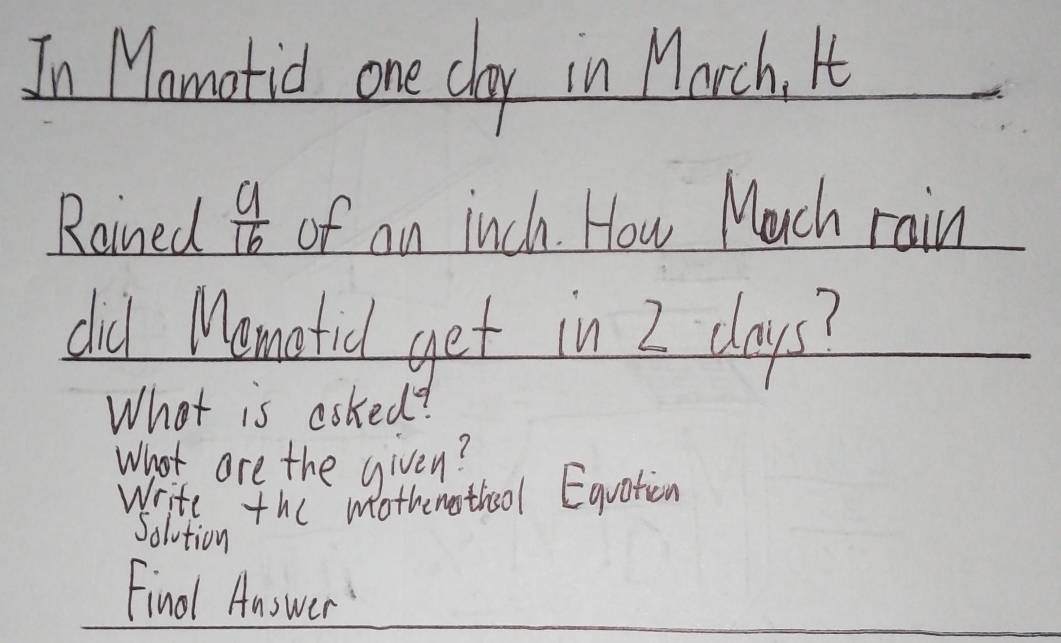 In Mamatid one day in March, It
Rained 9/16 of an inch. How Much rain
did Mamatid get in 2 days?
What is asked?
What are the given?
Write the mathematical Equation
Solution
Final Answer